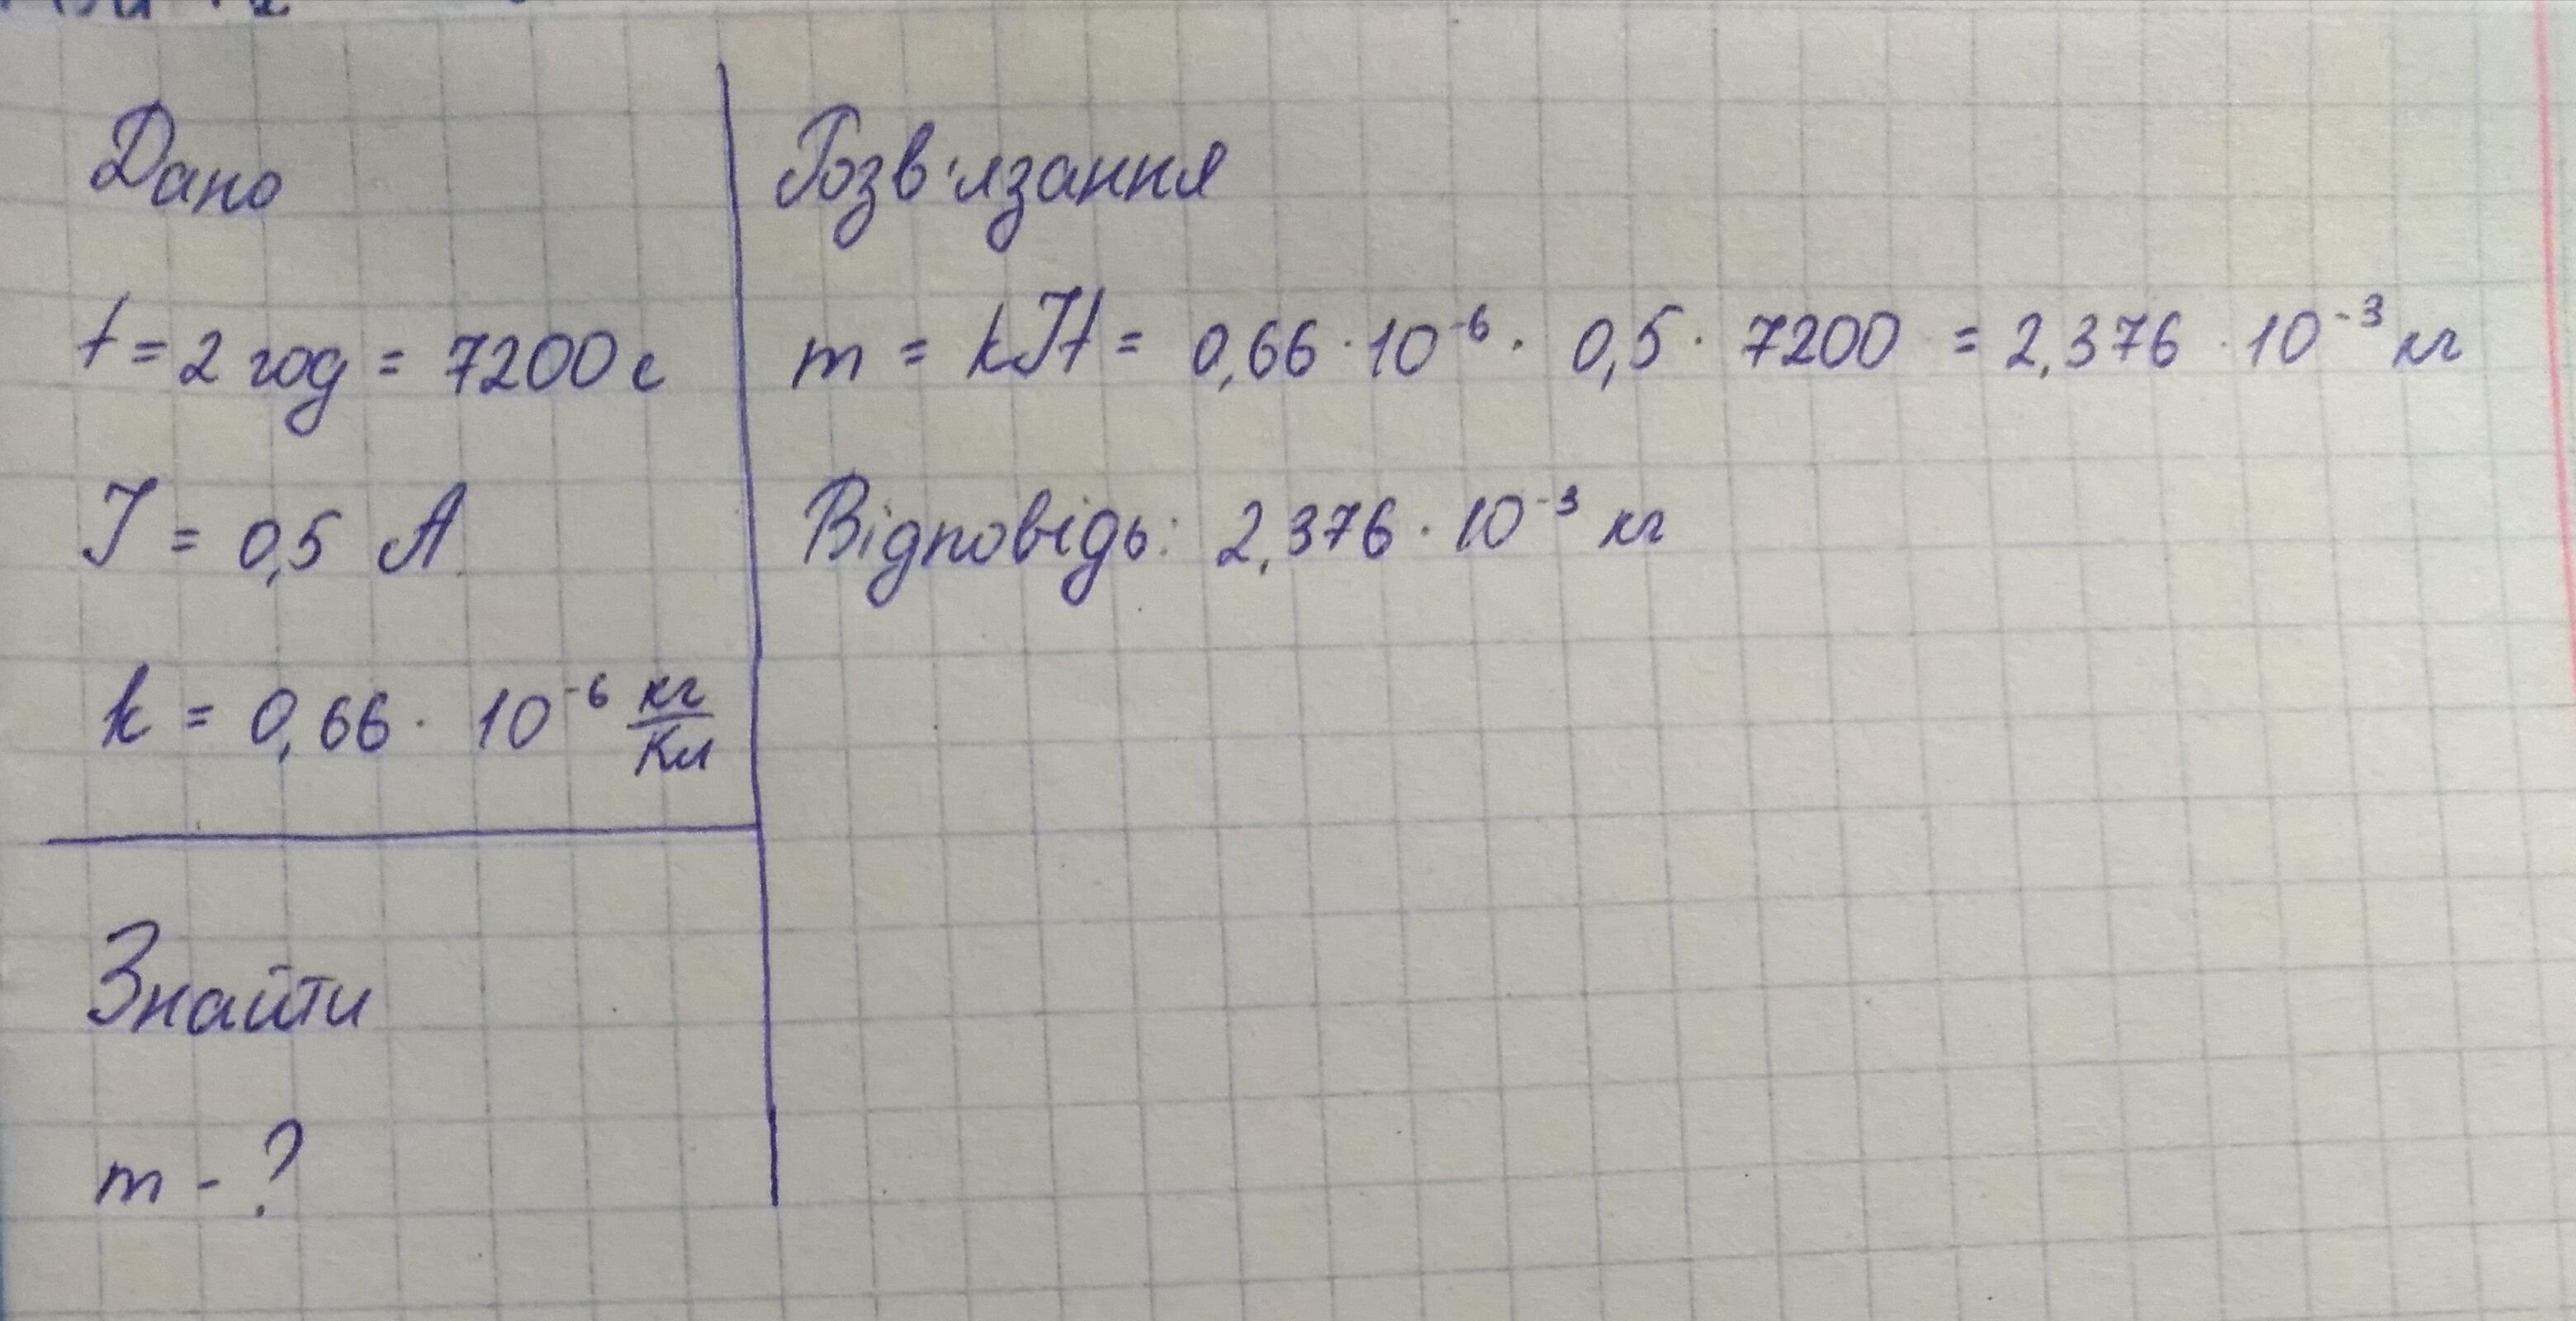 Дано
t = 2 год = 7200 с
I = 0,5 А
k = 0,66 · 10⁻⁶ кг/Кл
Знайти
m - ?
Розв'язання
m = kIt = 0,66 · 10⁻⁶ · 0,5 · 7200 = 2,376 · 10⁻³ кг
Відповідь: 2,376 · 10⁻³ кг